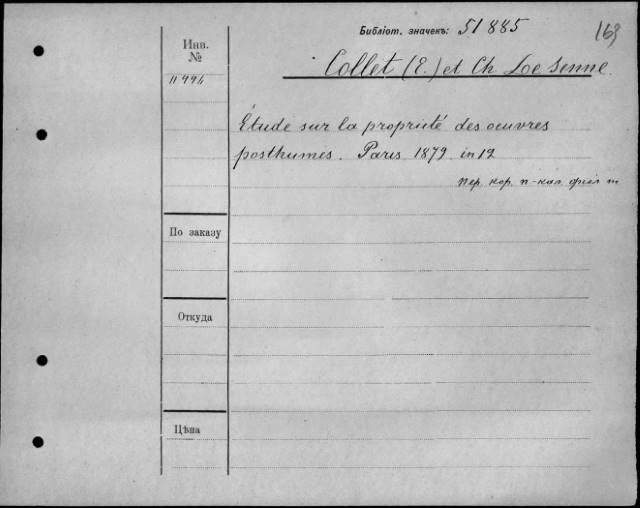 Библіот. значекъ: 51885
169
Инв.
№
Collet (E.) et Ch Le Senne.
11994
Étude sur la propriété des oeuvres
posthumes. Paris 1879 in 12
пер. кор. п-кал. фил т
По заказу
Откуда
Цѣна